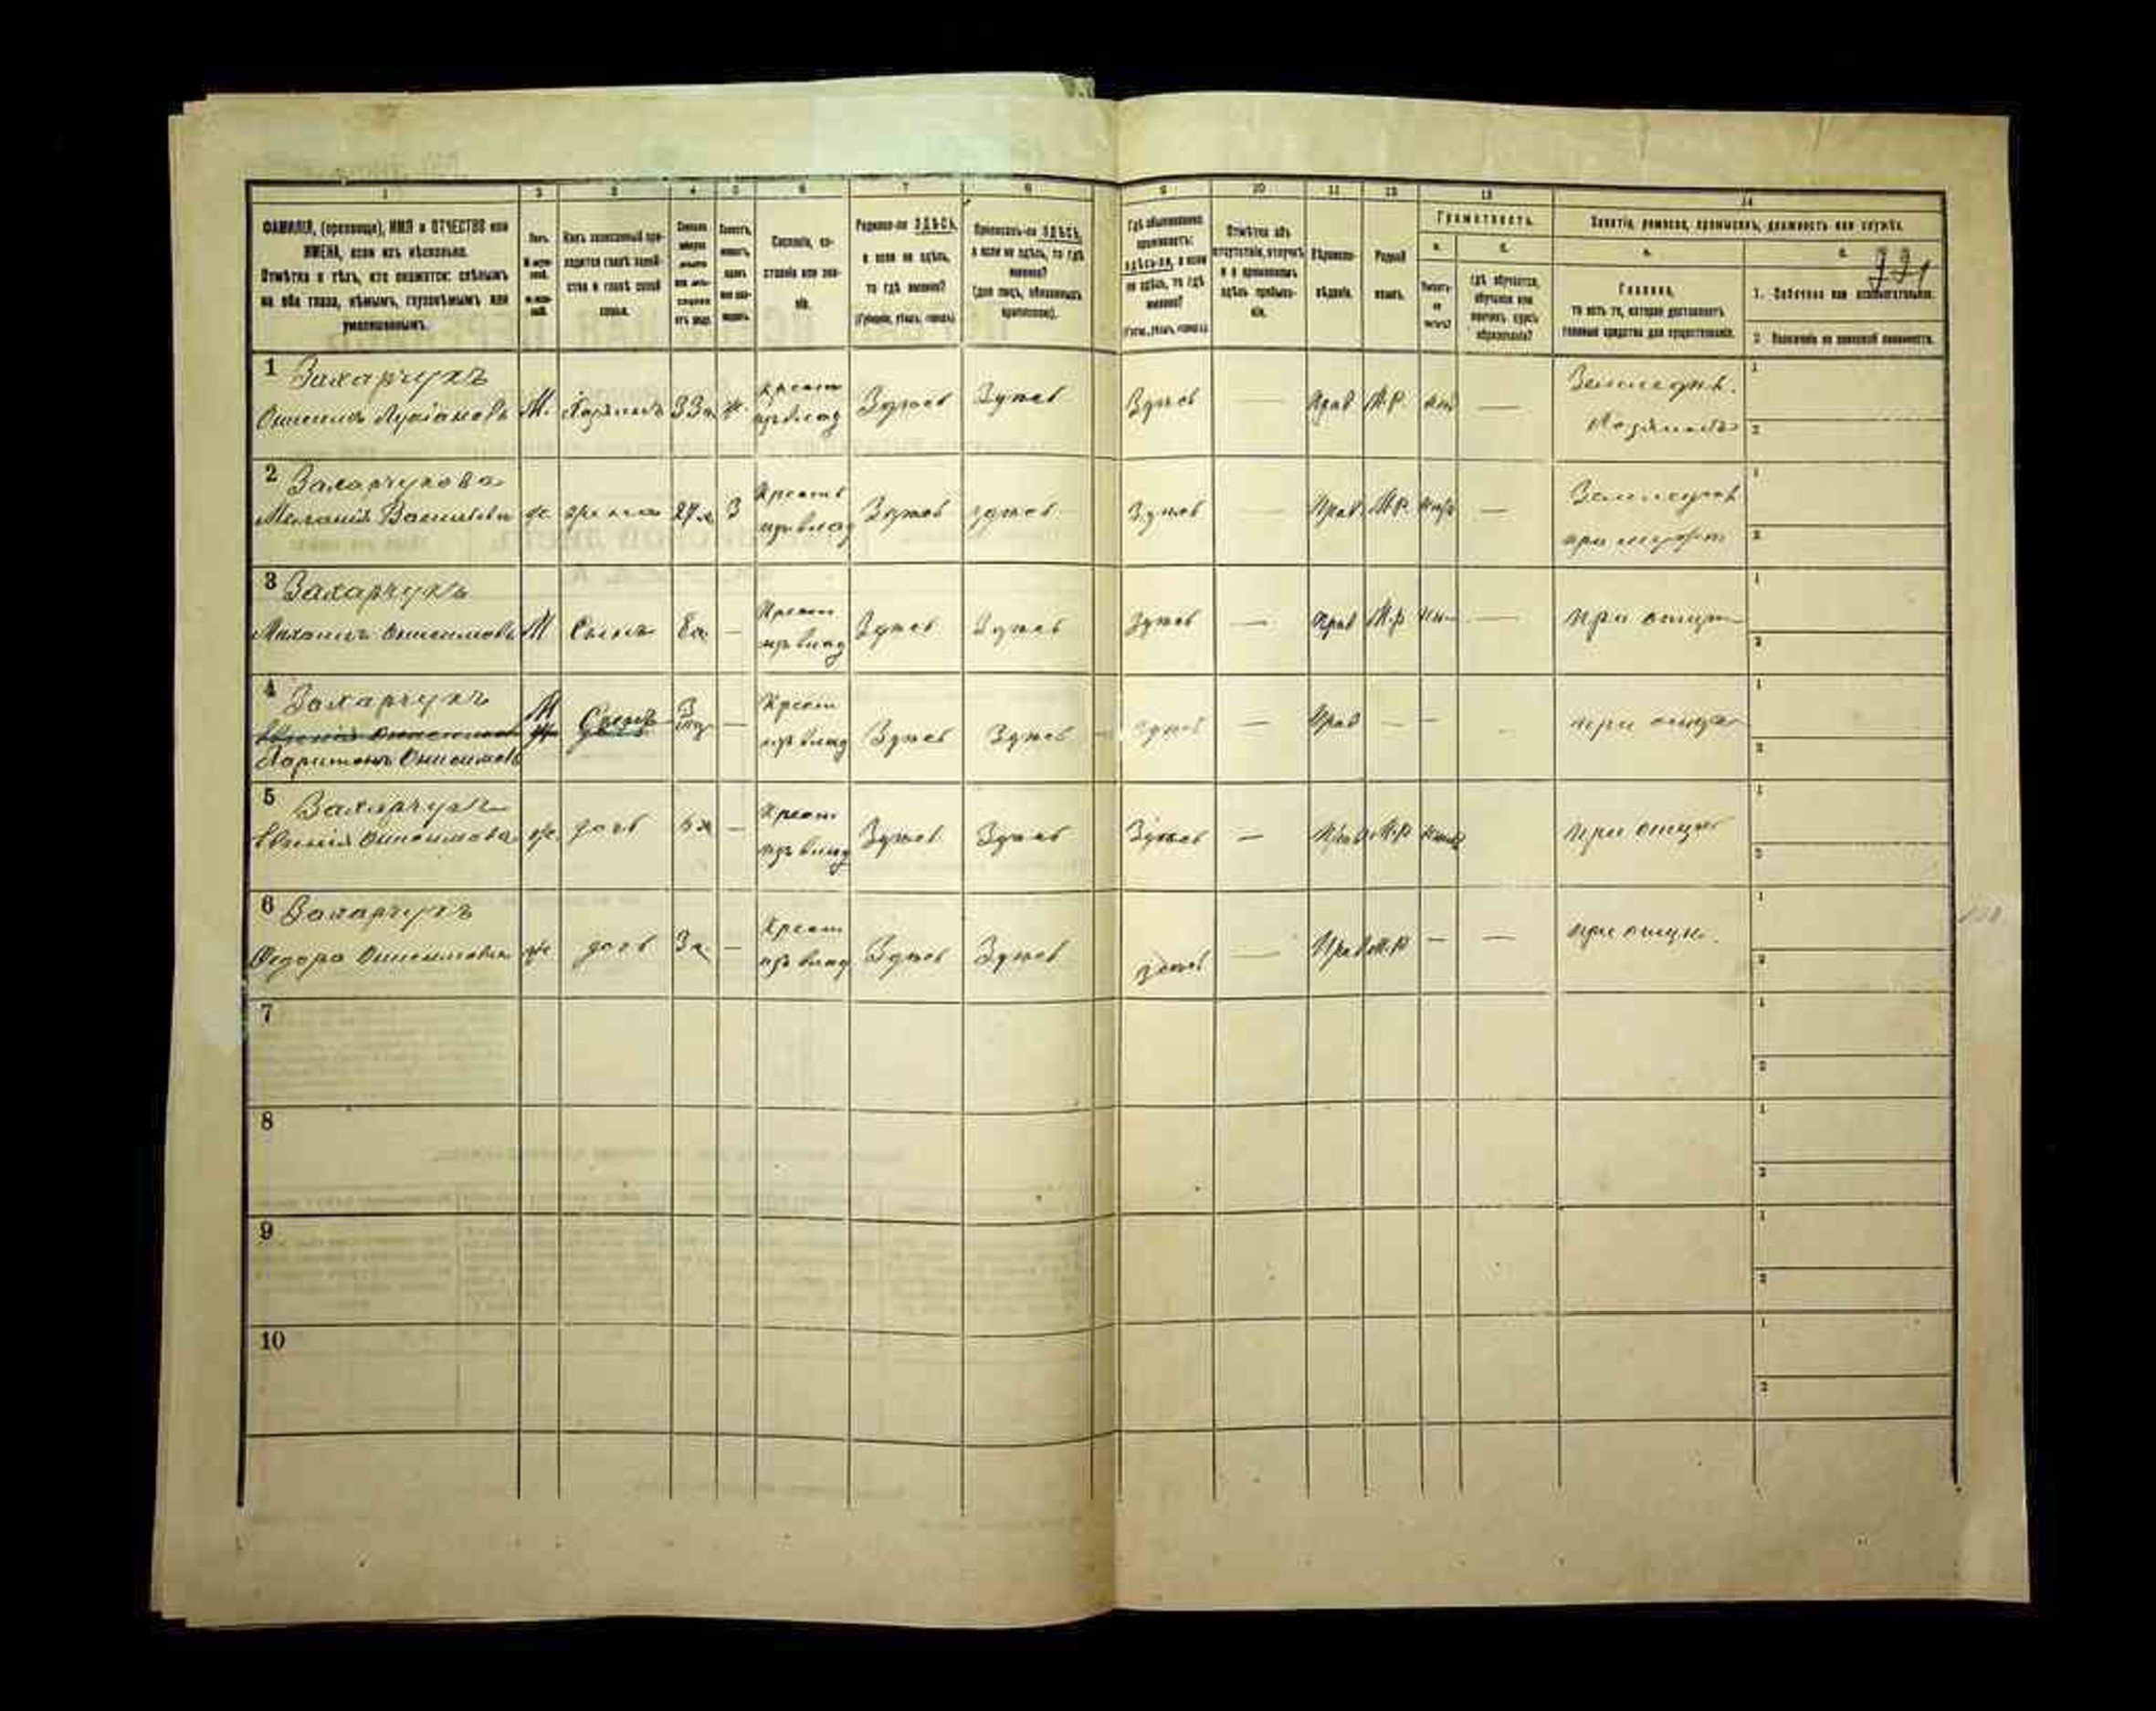 1 2 3 4 5 6 7 8 9 10 11 12 13 14
ФАМИЛІЯ, (прозвище), ИМЯ и ОТЧЕСТВО или
ИМЕНА, если ихъ нѣсколько.
Отмѣтка о тѣхъ, кто окажется: слѣпымъ
на оба глаза, нѣмымъ, глухонѣмымъ или
умалишеннымъ.
Полъ.
Какъ записанный при-
ходится главѣ хозяй-
ства и главѣ своей
семьи.
Сословіе, со-
стояніе или зва-
ніе.
Родился-ли ЗДѢСЬ,
а если не здѣсь,
то гдѣ именно?
(Губернія, уѣздъ, городъ).
Приписанъ-ли ЗДѢСЬ,
а если не здѣсь, то гдѣ
именно?
(для лицъ, обязанныхъ
припискою).
Гдѣ обыкновенно
проживаетъ:
здѣсь-ли, а если
не здѣсь, то гдѣ
именно?
(Губ., уѣздъ, городъ).
Отмѣтка объ
отсутствіи, отлучкѣ
и о временномъ
здѣсь пребыва-
ніи.
Вѣроиспо-
вѣданіе.
Родной
языкъ.
Грамотность.
а. б.
Умѣетъ-
ли
читать?
гдѣ обучается,
обучался или
кончилъ курсъ
образованія?
Занятіе, ремесло, промыселъ, должность или служба.
а. б.
Главное,
то есть то, которое доставляетъ
главныя средства для существованія.
991
1. Побочное или вспомогательное.
2. Положеніе по воинской повинности.
1 Захарчукъ
Онисимъ Лукіановъ М. Хозяинъ 33л. ж. Крест Здѣсь Здѣсь Здѣсь — Прав М.Р. — Земледѣл.
Хозяинъ
1
2
2 Захарчукова
Меланія Васильева ж жена 27л З Крест Здѣсь здѣсь Здѣсь — Прав. М.Р. — Земледѣл
при мужѣ
1
2
3 Захарчукъ
Михаилъ Онисимовъ М Сынъ 8л — Крест Здѣсь Здѣсь Здѣсь — Прав М.р — при отцѣ
1
2
4 Захарчукъ
Харитонъ Онисимовъ М Сынъ — Крест Здѣсь Здѣсь здѣсь — Прав — — при отцѣ
1
2
5 Захарчукъ
Евгенія Онисимова ж дочь — Крест Здѣсь Здѣсь Здѣсь — Прав М.Р при отцѣ
1
2
6 Захарчукъ
Федора Онисимова ж дочь 3л — Крест Здѣсь Здѣсь здѣсь — Прав М.Р — — при отцѣ.
1
2
7
1
2
8
1
2
9
1
2
10
1
2